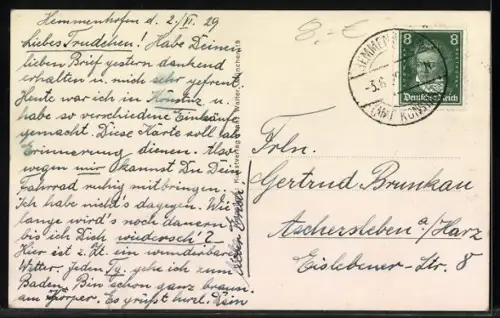 Hemmenhofen d. 2./VI. 29
Liebes Trudchen! Habe Deinen
lieben Brief gestern dankend
erhalten u. mich sehr gefreut.
Heute war ich in Konstnz u.
habe so verschiedene Einkäufe
gemacht. Diese Karte soll als
Erinnerung dienen. Also
wegen mir kannst Du Dein
Fahrrad ruhig mitbringen.
Ich habe nichts dagegen. Wie
lange wird's noch dauern
bis ich Dich wiederseh'?
Hier ist z. Zt. ein wunderbares
Wetter. Jeden Tg. gehe ich zum
Baden. Bin schon ganz braun
am Körper. Es grüßt herzl. Dein
8
8
Deutsches Reich
-3.6.
Frln.
Gertrud Brunkau
Aschersleben a/Harz
Eislebener-Str. 8